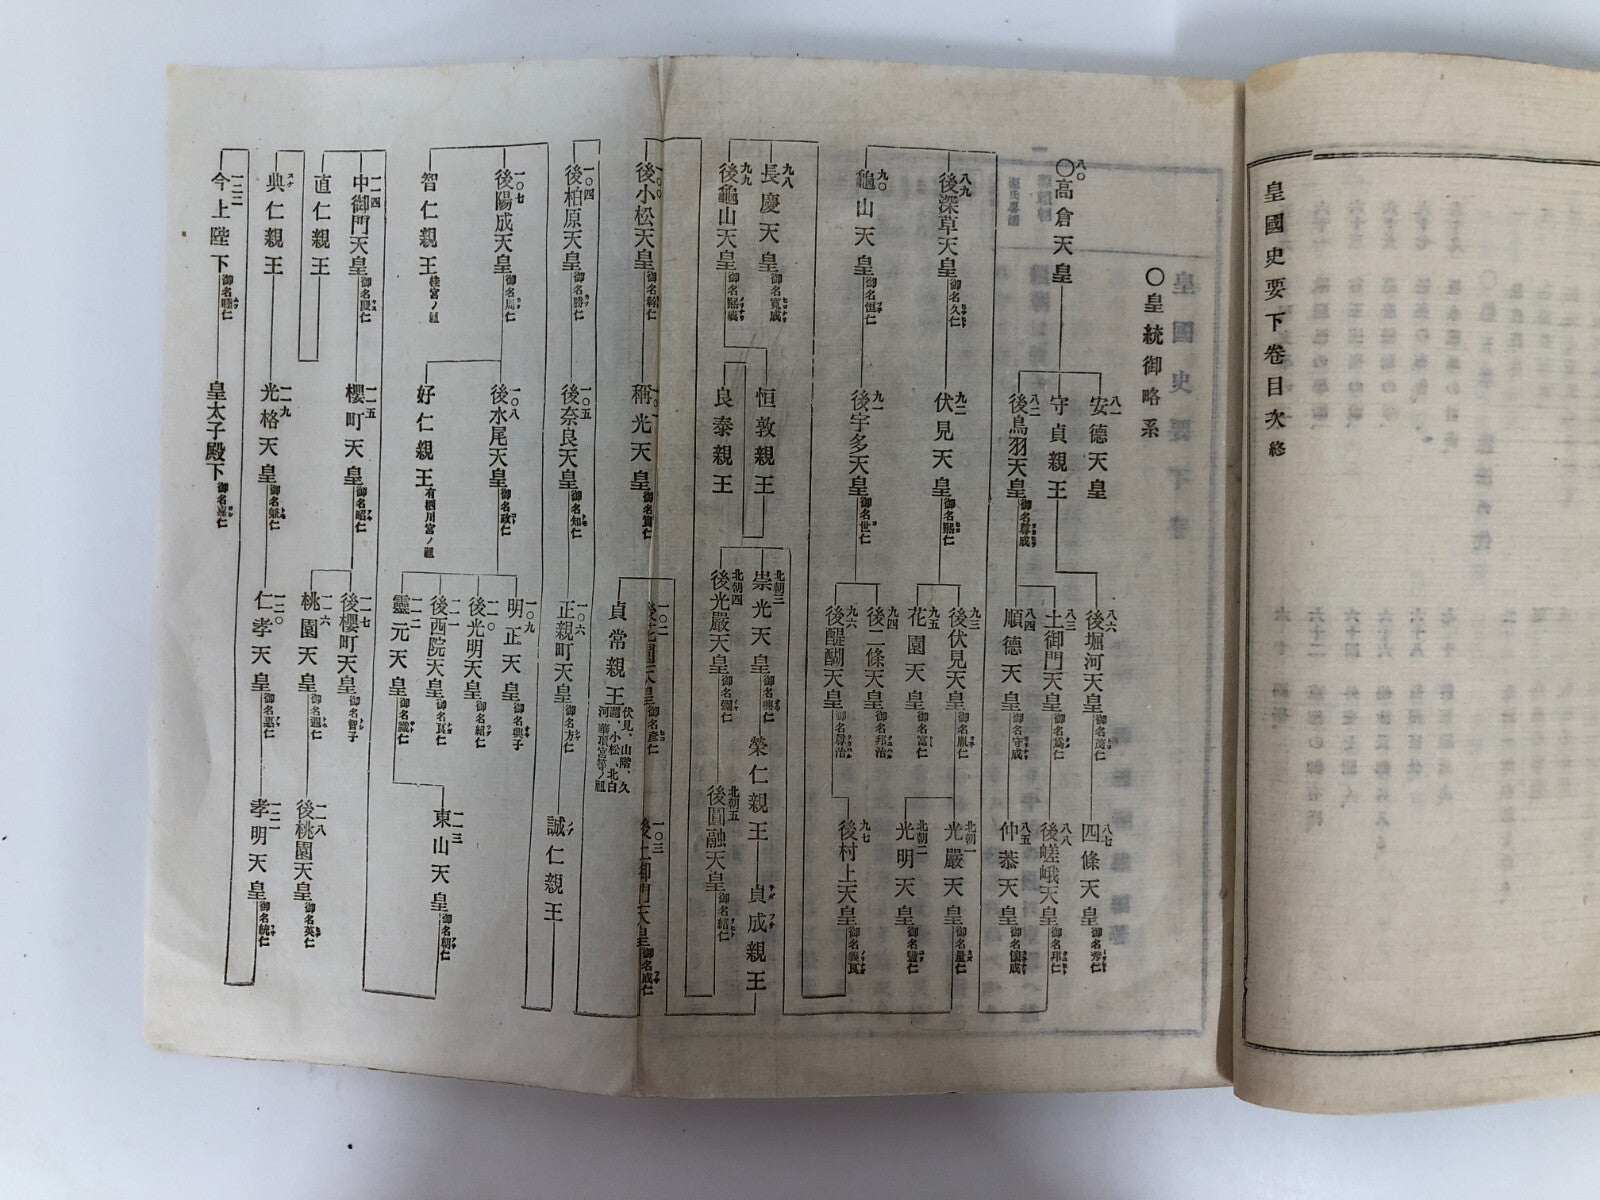 皇國史要下卷目次終
〇皇統御略系
八〇
〇高倉天皇
八一
安德天皇
守貞親王
八二
後鳥羽天皇御名尊成
八六
後堀河天皇御名茂仁
八三
土御門天皇御名爲仁
八四
順德天皇御名守成
八七
四條天皇御名秀仁
八八
後嵯峨天皇御名邦仁
八五
仲恭天皇御名懷成
八九
後深草天皇御名久仁
九〇
龜山天皇御名恒仁
九二
伏見天皇御名熙仁
九一
後宇多天皇御名世仁
九三
後伏見天皇御名胤仁
九五
花園天皇御名富仁
九四
後二條天皇御名邦治
九六
後醍醐天皇御名尊治
北朝一
光嚴天皇御名量仁
北朝二
光明天皇御名豐仁
九七
後村上天皇御名義良
九八
長慶天皇御名寬成
九九
後龜山天皇御名熙成
恒敦親王
良泰親王
北朝三
崇光天皇御名興仁
榮仁親王
貞成親王
北朝四
後光嚴天皇御名彌仁
北朝五
後圓融天皇御名緖仁
一〇〇
後小松天皇御名幹仁
一〇一
稱光天皇御名實仁
一〇二
後花園天皇御名彦仁
貞常親王伏見、山階、久邇、小松、北白河、華頂宮等ノ祖
一〇三
後土御門天皇御名成仁
一〇四
後柏原天皇御名勝仁
一〇五
後奈良天皇御名知仁
一〇六
正親町天皇御名方仁
誠仁親王
一〇七
後陽成天皇御名周仁
智仁親王桂宮ノ祖
一〇八
後水尾天皇御名政仁
好仁親王有栖川宮ノ祖
一〇九
明正天皇御名興子
一一〇
後光明天皇御名紹仁
一一一
後西院天皇御名良仁
一一二
靈元天皇御名識仁
一一三
東山天皇御名朝仁
一一四
中御門天皇御名慶仁
直仁親王
一一五
櫻町天皇御名昭仁
一一七
後櫻町天皇御名智子
一一六
桃園天皇御名遐仁
一一八
後桃園天皇御名英仁
典仁親王
一一九
光格天皇御名兼仁
一二〇
仁孝天皇御名惠仁
一二一
孝明天皇御名統仁
一二二
今上陛下御名睦仁
皇太子殿下御名嘉仁